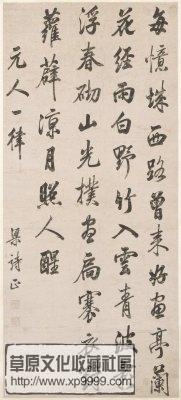 每憶城西路曾來好畫亭蘭
花經雨白野竹入雲青波影
浮春砌山光撲畫扃褰衣對
蘿薜涼月照人醒
元人一律
梁詩正
草原文化收藏網
www.xp9999.com